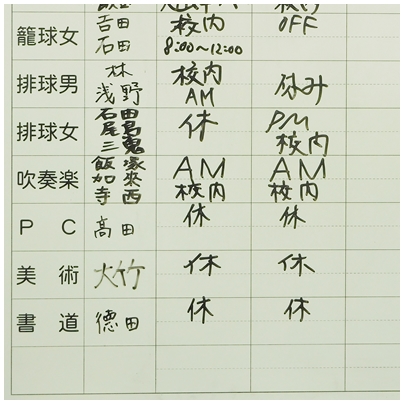 籠球女 吉田 校内 OFF
石田 8:00~12:00
排球男 林 校内 休み
浅野 AM
排球女 石田 休 PM
尾島 校内
三鬼
吹奏楽 飯塚 AM AM
加来 校内 校内
寺西
PC 高田 休 休
美術 大竹 休 休
書道 德田 休 休